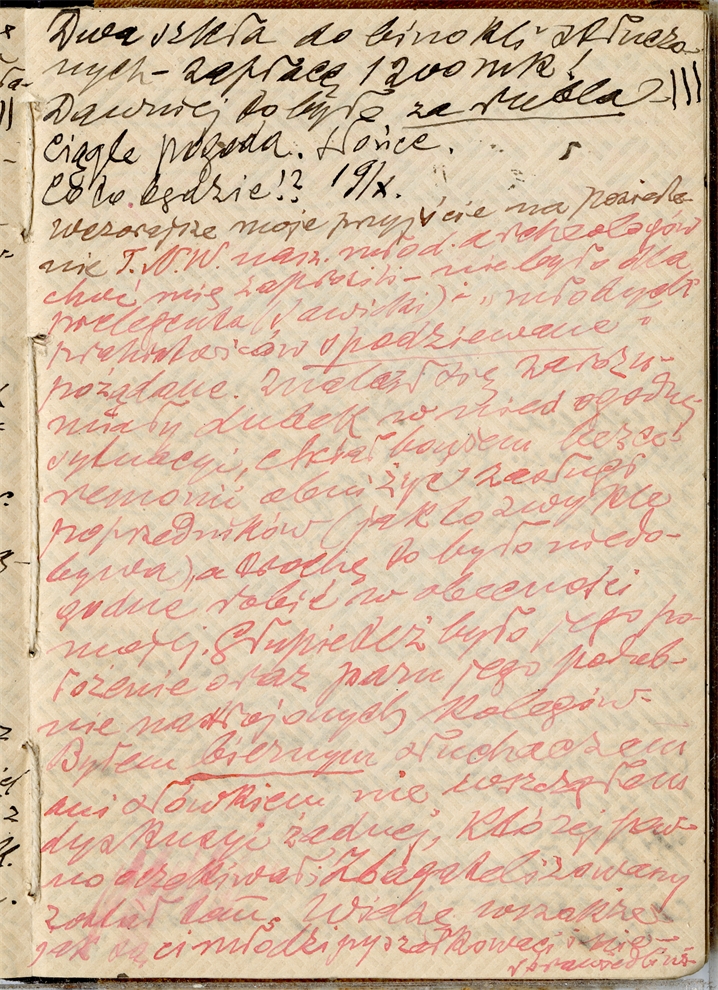 Dwa szkła do binokli stłuczo-
nych – zapłacę 1200 mk!
Dawniej to było za rubla – !!!
Ciągle pogoda. Słońce.
Co to będzie!? 19/X.
Wczorajsze moje przyjście na posiedze-
nie T.N.W. nasz. młod. archeologów
choć mię zaprosili – nie było dla
prelegenta (Sawicki) i „młodych
prahistoryków spodziewane"
pożądane. Znalazł się zarozu-
miały dudek w niewygodnej
sytuacji, chciał bowiem bezce-
remonii obniżyć zasługi
poprzedników (jak to zwykle
bywa), a trochę to było niedo-
godne robić w obecności
mojej. Głupie też było jego po-
łożenie oraz paru jego podob-
nie nastrojonych kolegów –
Byłem biernym słuchaczem
ani słówkiem nie wszcząłem
dyskusji żadnej, której pew-
no oczekiwali. Zbagatelizowany
został tam. Widzę wszakże
jak są ci młodzi pyszałkowaci i nie-
sprawiedliwi